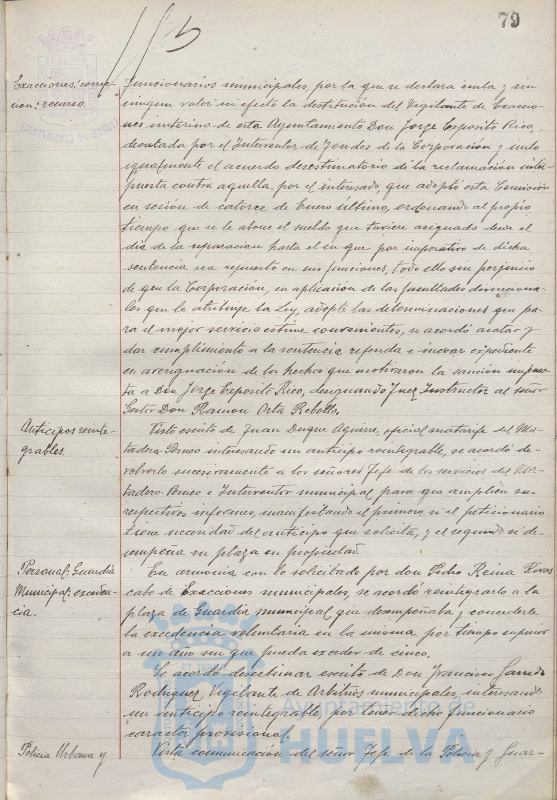 79
Exacciones, correc-
cion: recurso.
funcionarios municipales, por la que se declara nula y sin
ningun valor ni efecto la destitución del Vigilante de Exaccio-
nes interino de este Ayuntamiento Don Jorge Exposito Rico,
decretada por el Interventor de Fondos de la Corporación y nulo
igualmente el acuerdo desestimatorio de la reclamación inter-
puesta contra aquella por el interesado, que adoptó esta Comisión
en sesion de catorce de Enero último, ordenando al propio
tiempo que se le abone el sueldo que tuviere asignado desde el
dia de la separacion hasta el en que por imperativo de dicha
sentencia sea repuesto en sus funciones, todo ello sin perjuicio
de que la Corporación, en aplicacion de las facultades discreciona-
les que le atribuye la Ley, adopte las determinaciones que pa-
ra el mejor servicio estime convenientes, se acordó acatar y
dar cumplimiento a la sentencia referida e incoar expediente
en averiguación de los hechos que motivaron la sanción impues-
ta a Don Jorge Exposito Rico, designando Juez Instructor al señor
Gestor Don Ramon Orta Rebollo.
Anticipos reinte-
grables.
Visto escrito de Juan Duque Aguirre, oficial matarife del Ma-
tadero Porcino interesando un anticipo reintegrable, se acordó de-
volverlo sucesivamente a los señores Jefe de los servicios del Ma-
tadero Porcino e Interventor municipal para que amplien sus
respectivos informes, manifestando el primero si el peticionario
tiene necesidad del anticipo que solicita, y el segundo si de-
sempeña su plaza en propiedad.
Personal: Guardia
Municipal: exceden-
cia.
En armonia con lo solicitado por don Pedro Reina Rivas
cabo de Exacciones municipales, se acordó reintegrarlo a la
plaza de Guardia municipal que desempeñaba y concederle
la excedencia voluntaria en la misma por tiempo superior
a un año sin que pueda exceder de cinco.
Se acordó desestimar escrito de Don Francisco Garrido
Rodriguez, Vigilante de Arbitrios municipales, interesando
un anticipo reintegrable, por tener dicho funcionario
caracter provisional.
Policia Urbana y
Vista comunicación del señor Jefe de la Policia y Guar-
Ayuntamiento de
HUELVA